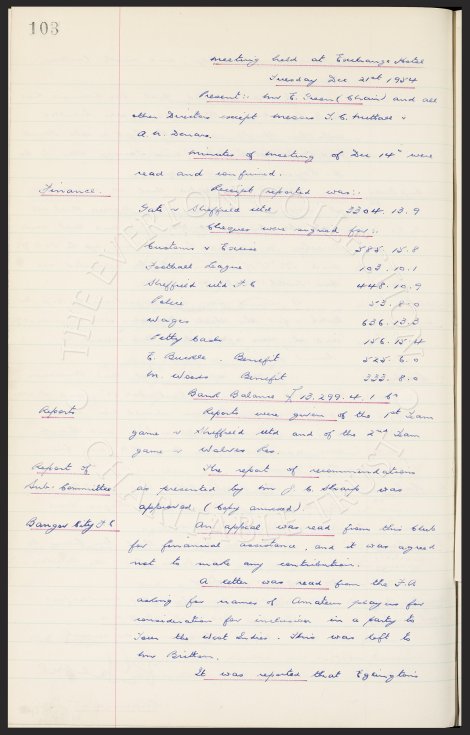 103
Meeting held at Exchange Hotel
Tuesday Dec 21st 1954
Present:- Mr E. Green (Chair) and all
other Directors except Messrs T. C. Nuttall &
A. N. Denaro.
Minutes of Meeting of Dec 14th were
read and confirmed.
Finance. Receipt reported was:-
Gate v Sheffield Utd 3304. 13. 9
Cheques were signed for:-
Customs & Excise 585. 15. 8
Football League 103. 10. 1
Sheffield Utd F.C 448. 10. 9
Police 53. 8. 0
Wages 636. 13. 3
Petty Cash 156. 15. 4
E. Buckle . Benefit 525. 6. 0
M. Woods Benefit 333. 8. 0
Bank Balance £13,299. 4. 1
Reports Reports were given of the 1st Team
game v Sheffield Utd and of the 2nd Team
game v Wolves Res.
Report of The report of recommendations
Sub-Committee as presented by Mr J. C. Sharp was
approved. (Copy annexed)
Bangor City F.C An appeal was read from this Club
for financial assistance, and it was agreed
not to make any contribution.
A letter was read from the F.A
asking for names of Amateur players for
consideration for inclusion in a party to
Tour the West Indies. This was left to
Mr Britton.
It was reported that Eglington's
THE EVERTON COLLECTION